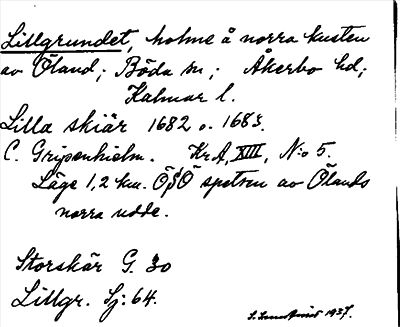 Lillgrundet, holme å norra kusten
av Öland; Böda sn; Åkerbo hd;
Kalmar l.
Lilla skiär 1682 o. 1683.
C. Gripenhielm. KrA, XIII, N:o 5.
Läge 1,2 km. ÖSÖ spetsen av Ölands
norra udde.
Storskär G. 30
Lillgr. Sj: 64.
1937.